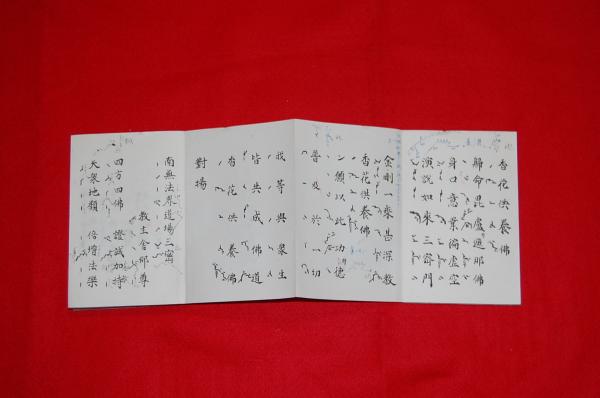 香花供養佛
歸命毘盧遮那佛
身口意業徧虛空
演說如來三密門
金剛一乘甚深教
香花供養佛
願以此功德
普及於一切
我等與衆生
皆共成佛道
香花供養佛
對揚
南無法界道場三密
教主舍那尊
四方四佛 證誠加持
天衆地類 倍增法樂